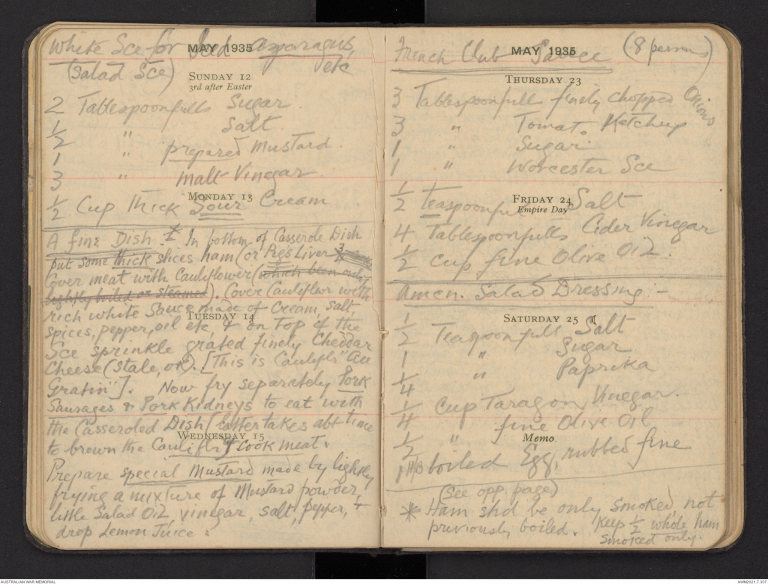 White Sce for Asparagus,
MAY 1935
(Salad Sce) etc
SUNDAY 12
3rd after Easter
2 Tablespoonfulls Sugar.
1/2 " Salt.
1 " prepared Mustard.
3 " Malt Vinegar
MONDAY 13
1/2 Cup thick Sour Cream
A fine Dish. * In bottom of Casserole Dish
put some thick slices ham (or Pigs Liver
Cover meat with Cauliflower (which been only
lightly boiled or steamed). Cover Cauliflwr with
rich white Sauce made of Cream, salt,
TUESDAY 14
spices, pepper, oil etc, & on top of the
Sce sprinkle grated finely Cheddar
Cheese (stale, ok). [This is Caulifl: "Au
Gratin"]. Now fry separately Pork
Sausages & Pork Kidneys to eat with
the Casseroled Dish (latter takes abt 1 hour
WEDNESDAY 15
to brown the Caulifl: & Cook meat.
Prepare special Mustard made by lightly
frying a mixture of Mustard powder,
little Salad Oil, vinegar, salt, pepper, &
drop Lemon Juice.
French Club Sauce (8 persons)
MAY 1935
THURSDAY 23
3 Tablespoonfull finely chopped Onions
3 " Tomato Ketchup
1 " Sugar
1 " Worcester Sce
FRIDAY 24
Empire Day
1/2 Teaspoonfull Salt
4 Tablespoonfulls Cider Vinegar
1/2 cup fine Olive Oil.
Amer. Salad Dressing:-
SATURDAY 25
1/2 Teaspoonfull Salt
1 " Sugar
1/4 " Paprika
1/4 Cup Taragon Vinegar.
1/2 " fine Olive Oil
Memo
1 boiled Egg, rubbed fine
(See opp. page)
* Ham shd be only smoked, not
previously boiled. (Keep 1/2 whole ham
smoked only.
AUSTRALIAN WAR MEMORIAL